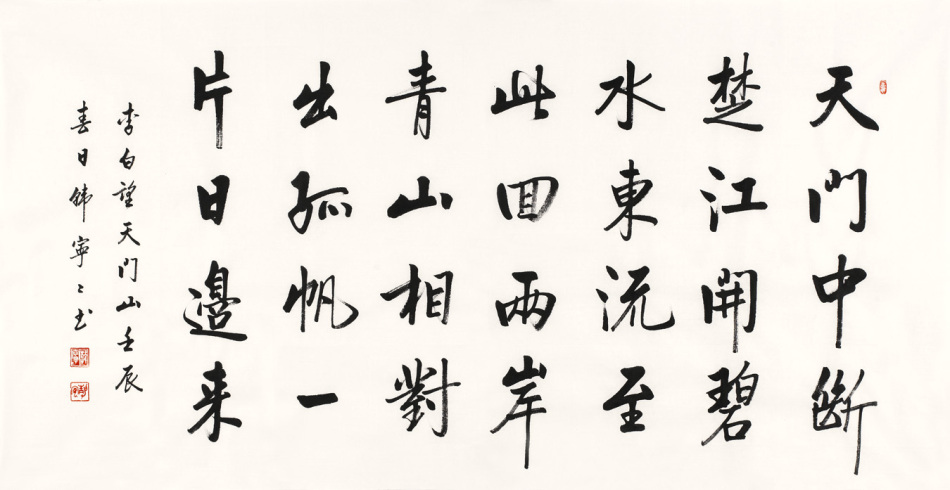 天門中斷
楚江開碧
水東流至
此回兩岸
青山相對
出孤帆一
片日邊来
李白望天門山壬辰
春日韩寧寧书